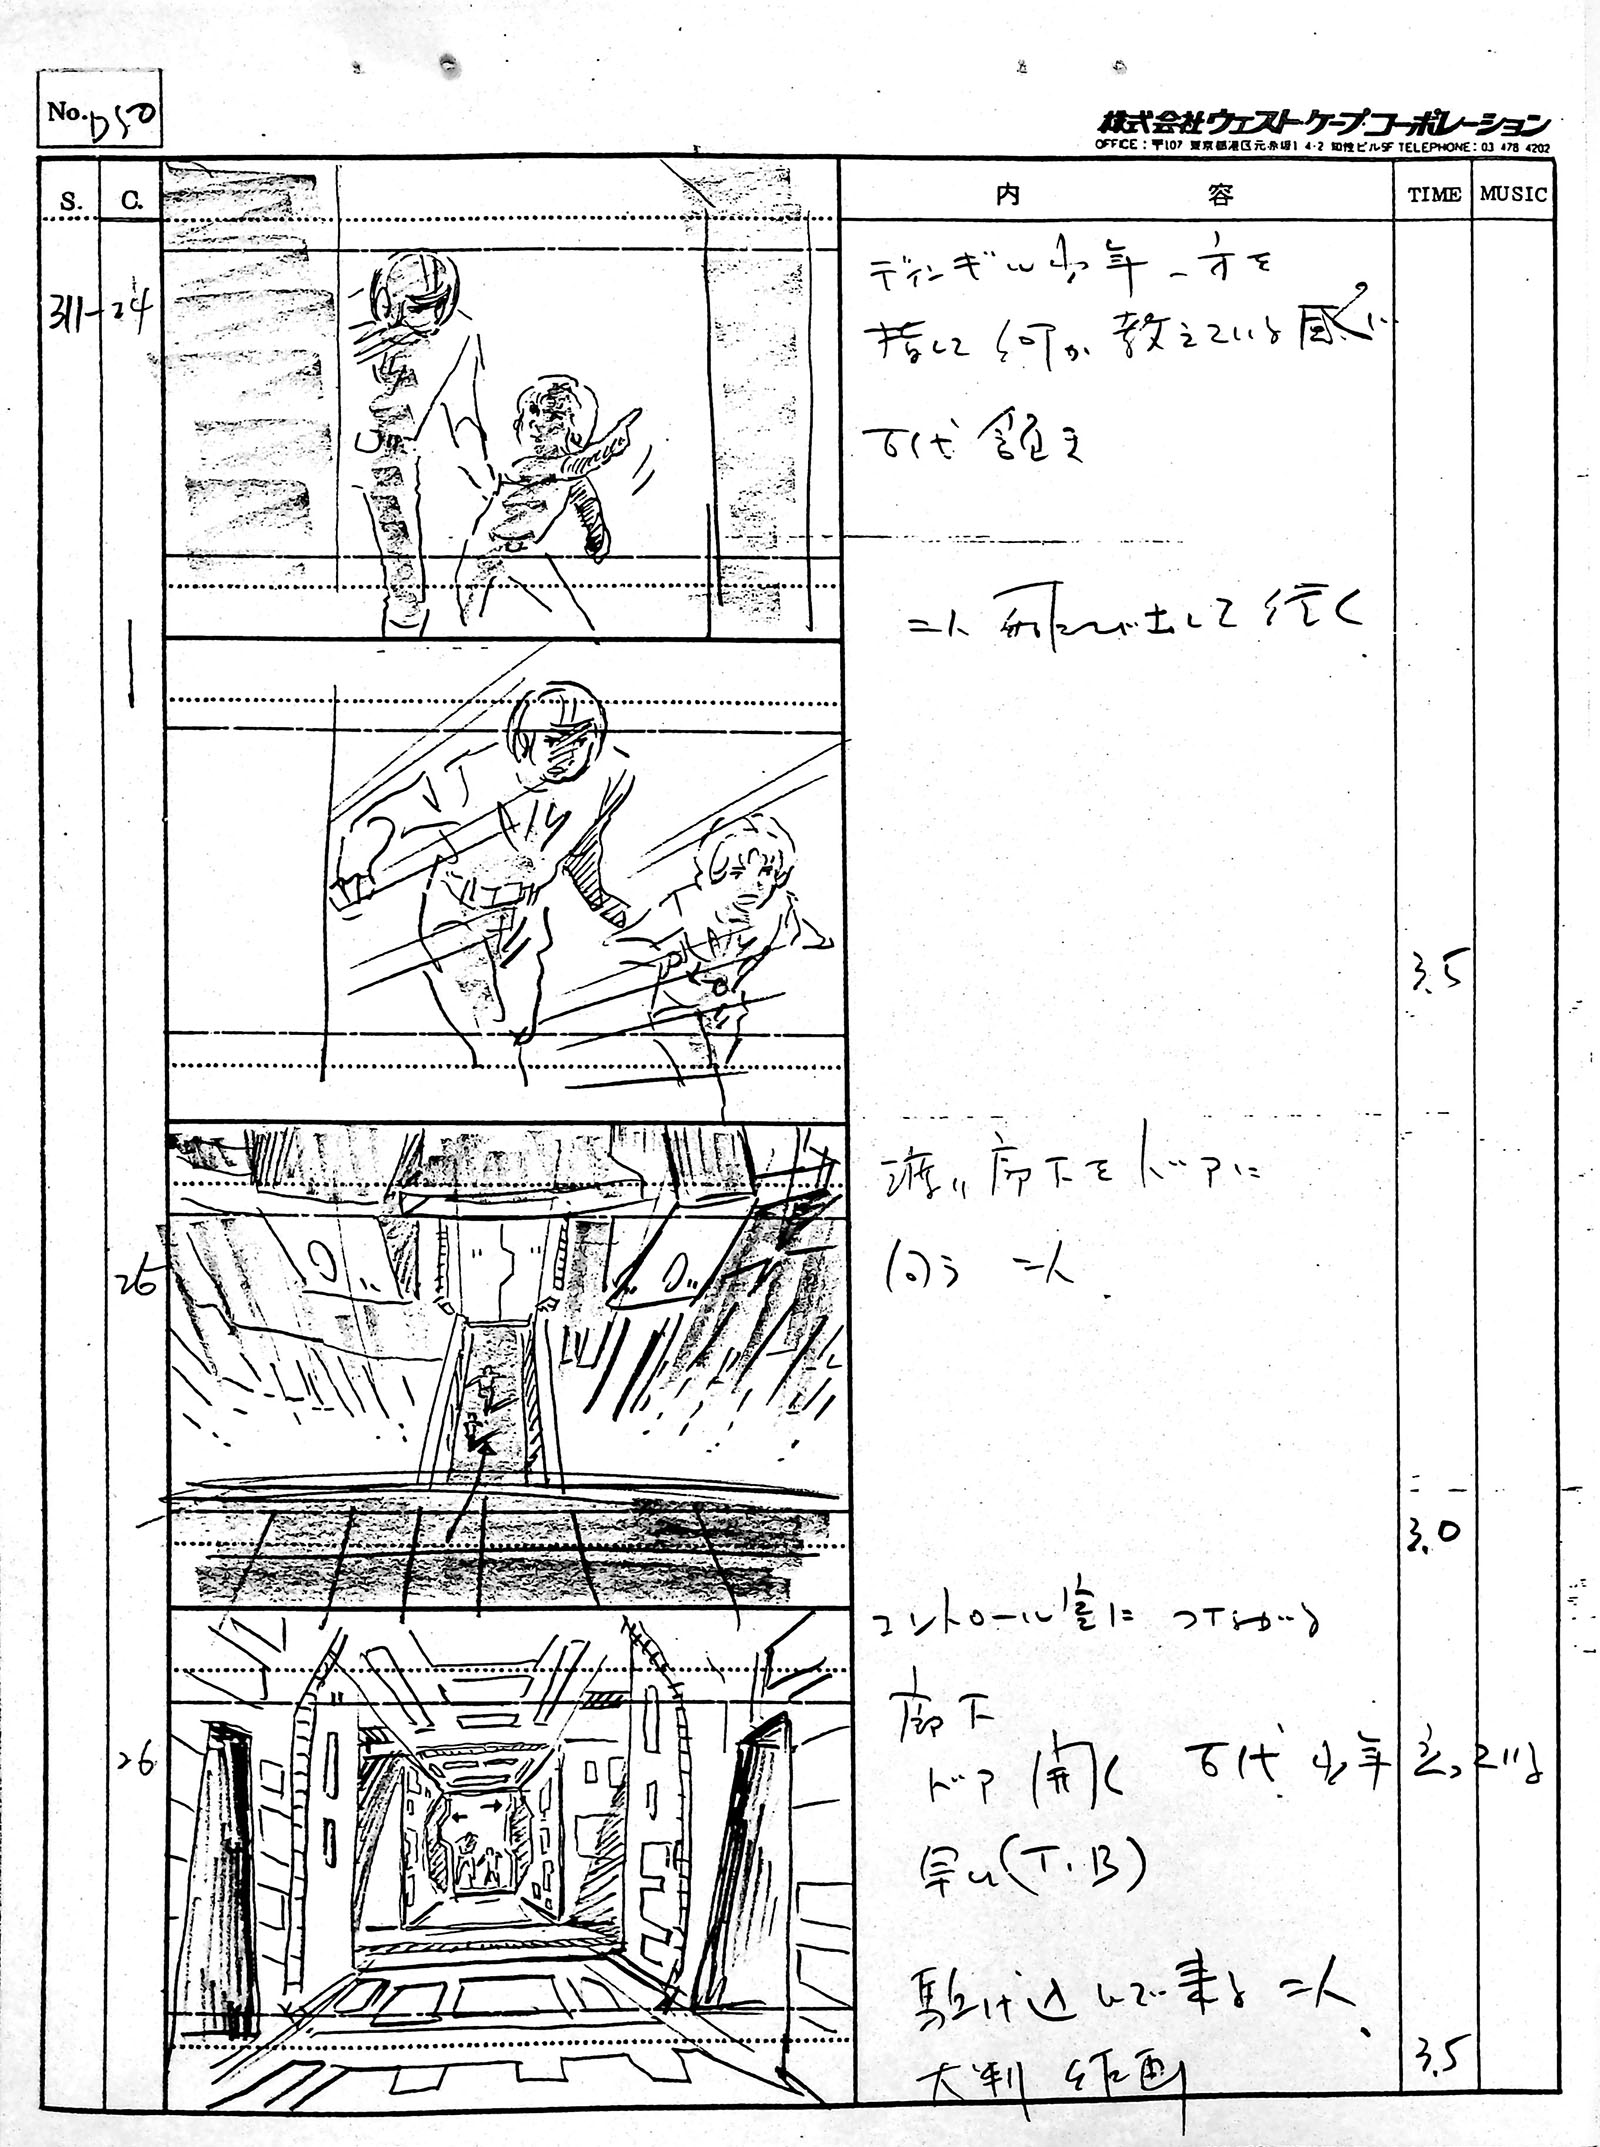 No. D50
株式会社ウェスト・ケープ・コーポレーション
OFFICE：〒107 東京都港区元赤坂1 4-2 知性ビル5F TELEPHONE：03 478 4202
S. C. 内容 TIME MUSIC
311-24
ディンギル少年 一方を
指して何か教えている風に
古代
二人 飛び出して行く
3.5
25
渡り廊下をドアに
向う 二人
3.0
26
コントロール室につながる
廊下
ドア開く 古代 少年 立っている
早い(T.B)
駆け込んで来る二人
大判 絵画
3.5